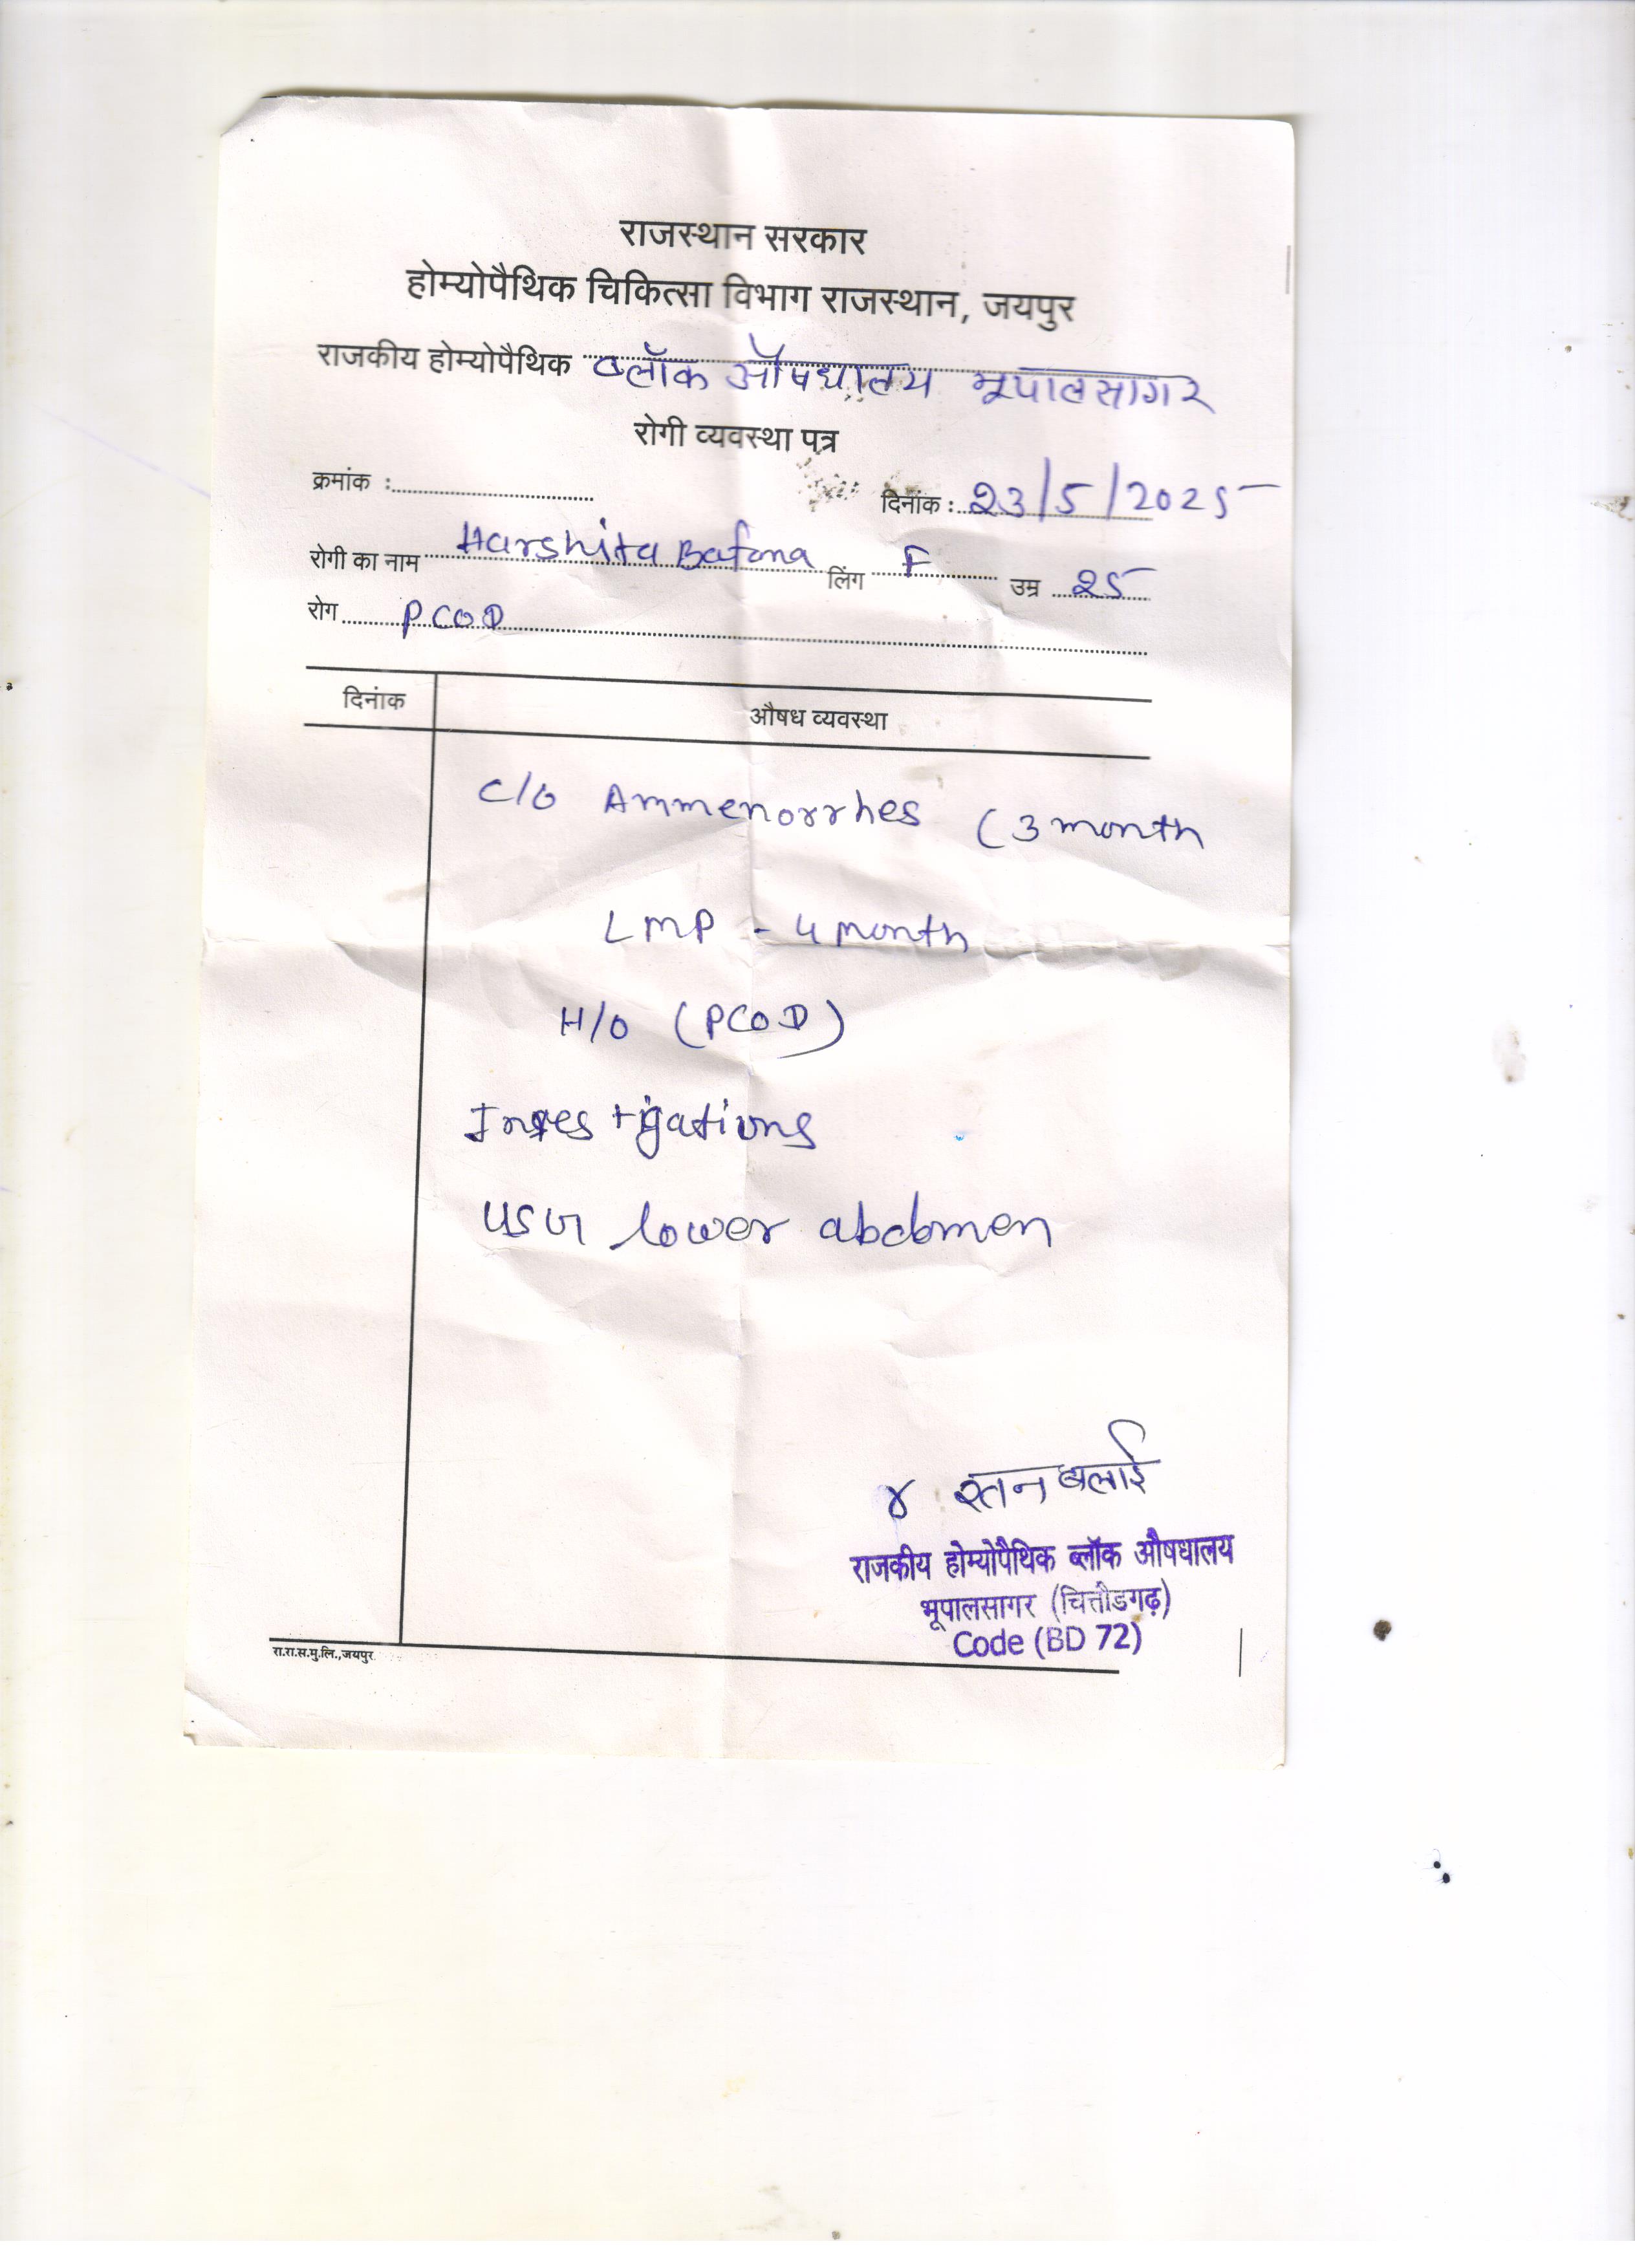 राजस्थान सरकार
होम्योपैथिक चिकित्सा विभाग राजस्थान, जयपुर
राजकीय होम्योपैथिक ब्लॉक औषधालय भूपालसागर
रोगी व्यवस्था पत्र
क्रमांक : दिनांक : 23/5/2025
रोगी का नाम Harshita Bafana लिंग F उम्र 25
रोग PCOD
दिनांक औषध व्यवस्था
C/o Ammenorrhes (3 month
LMP - 4 month
H/O (PCOD)
Investigations
USG lower abdomen
रतन बलाई
राजकीय होम्योपैथिक ब्लॉक औषधालय
भूपालसागर (चित्तौडगढ़)
Code (BD 72)
रा.रा.स.मु.लि.,जयपुर